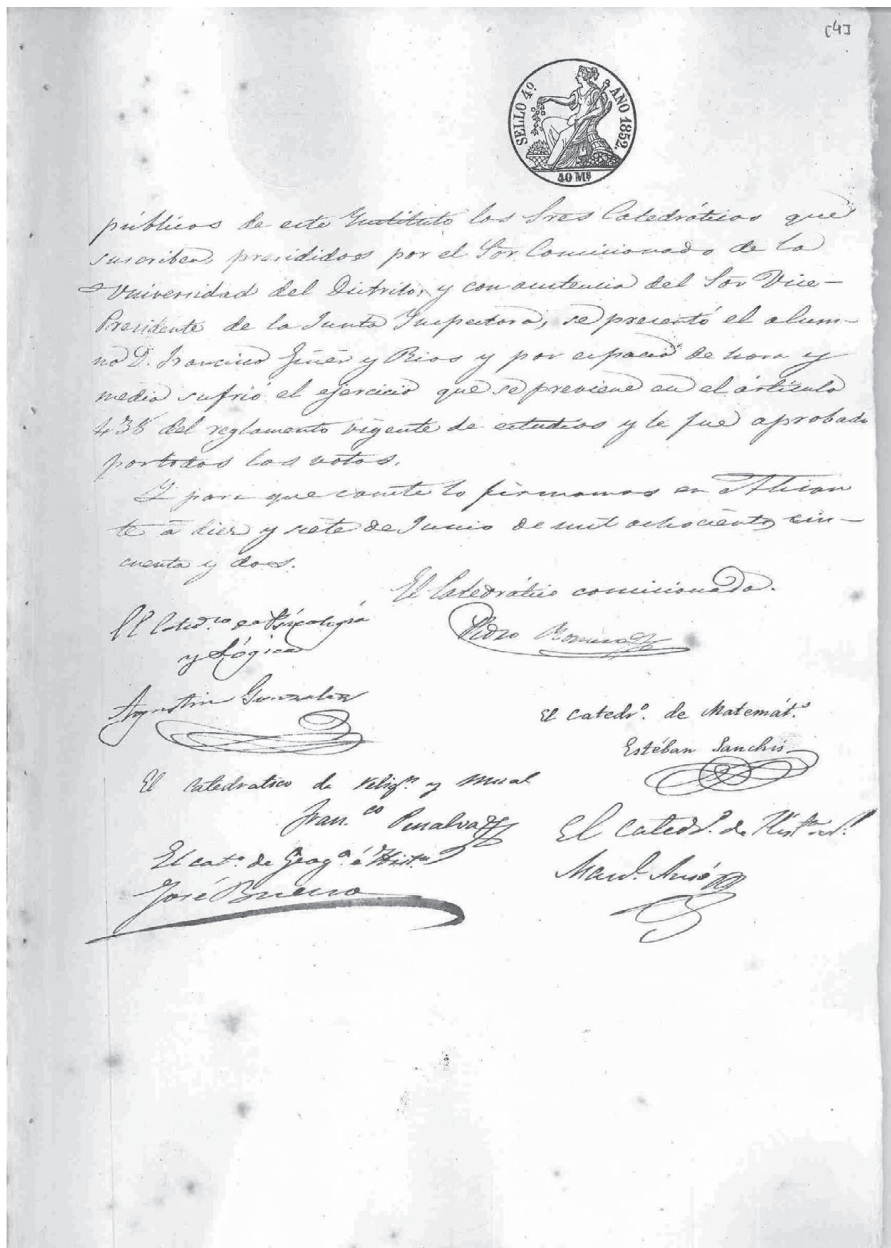 [4]
SELLO 4º. AÑO 1852.
40 Ms
públicos de este Instituto los Sres Catedráticos que
suscriben, presididos por el Sor. Comicionado de la
Universidad del Distrito, y con asistencia del Sor Vice-
Presidente de la Junta Inspectora, se presentó el alum-
no D. Francisco Giner y Rios y por espacio de hora y
media sufrió el ejercicio que se previene en el artículo
438 del reglamento vigente de estudios y le fue aprobado
por todos los votos.
Y para que conste lo firmamos en Alican
te á diez y siete de Junio de mil ochociento cin-
cuenta y dos.
El Catedrático comicionado.
Pedro
El Catedco de Psicología
y Lógica
Agustin Gonzalez
El Catedrº. de Matemátˢ
Estéban Sanchis
El Catedratico de Religⁿ y Moral
Franᶜᵒ Penalva
El catº. de Geogª é Histª
José Bueno
El Catedº. de Histª
Manl. Ausó